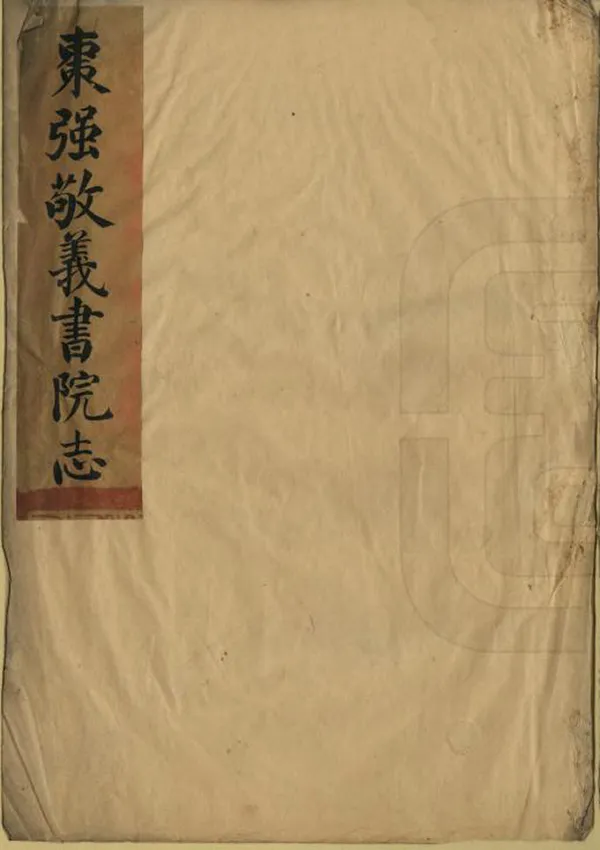 棗强敬義書院志